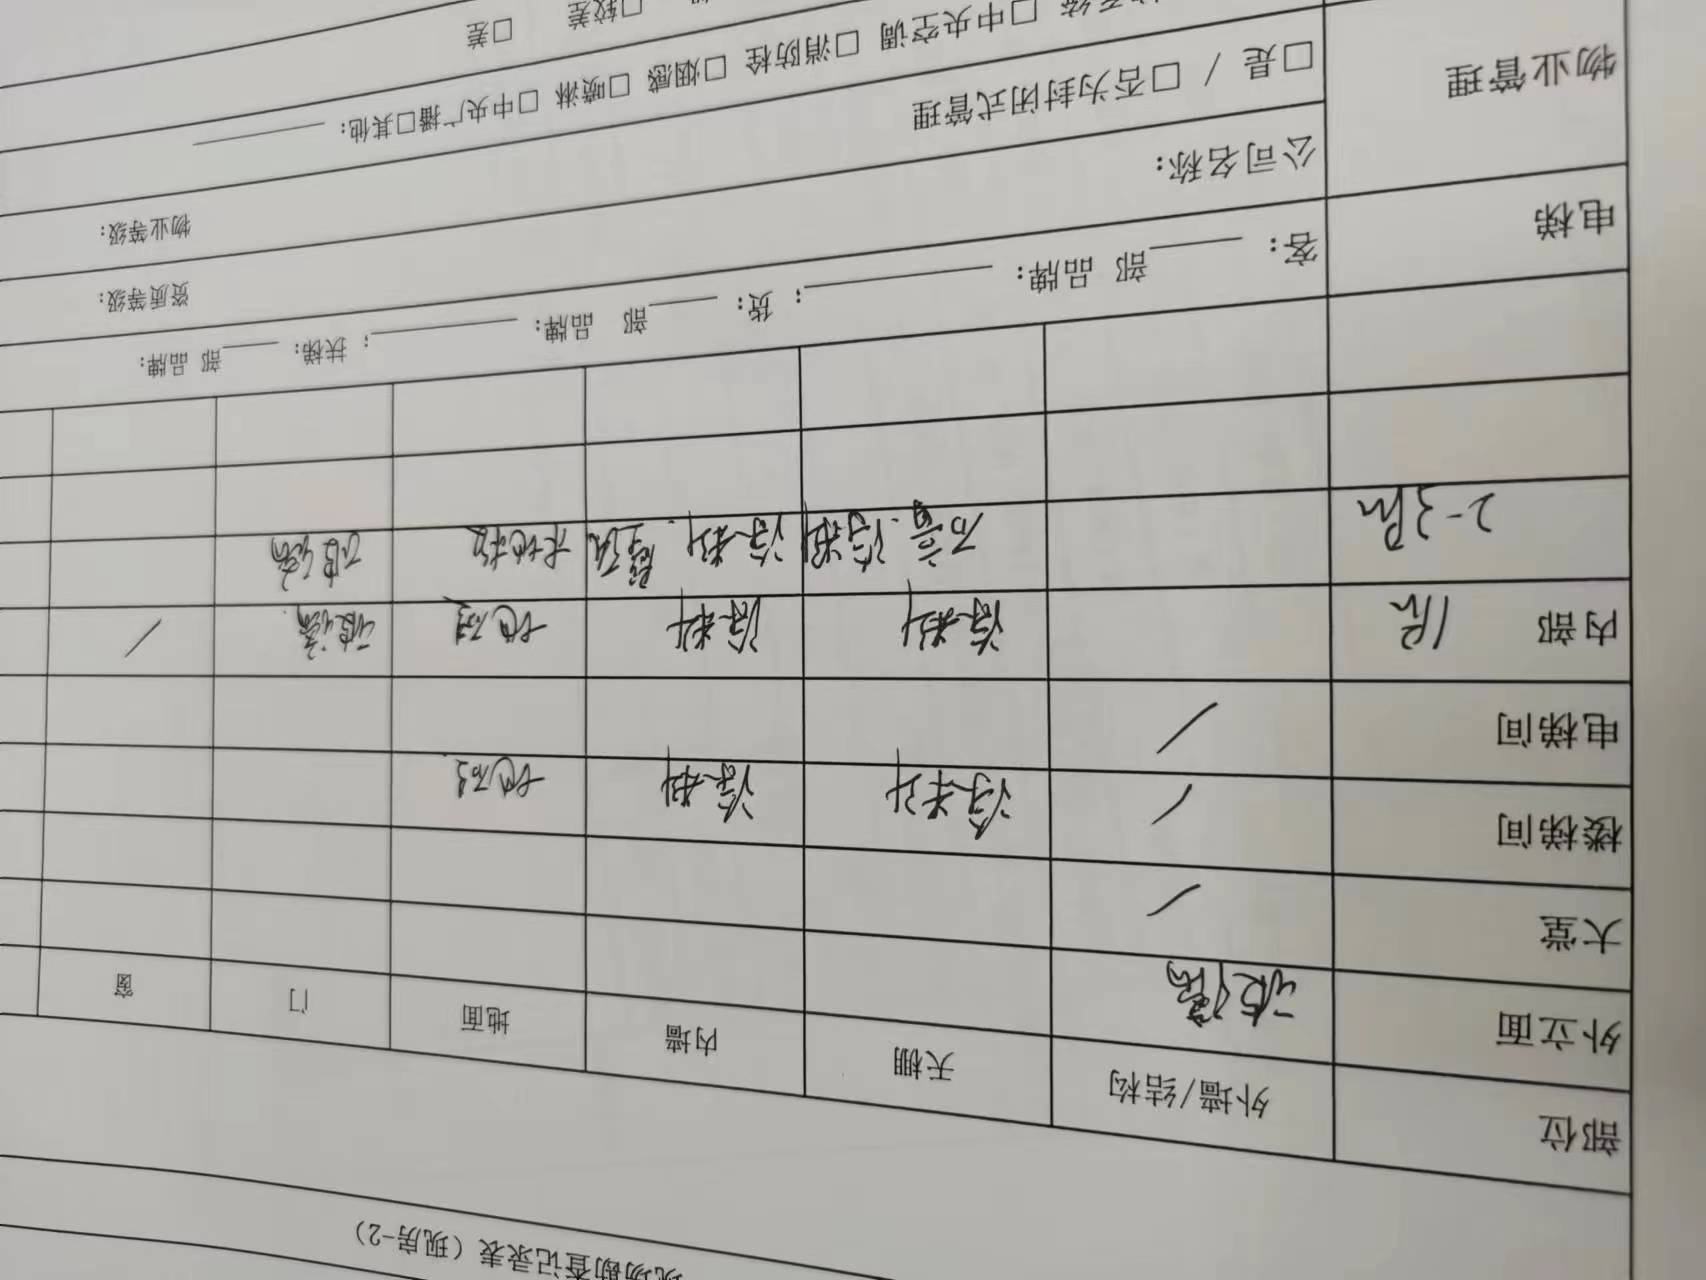 现场勘查记录表（现房-2）
部位 外墙/结构 天棚 内墙 地面 门 窗
外立面 玻璃
大堂 /
楼梯间 / 涂料 涂料 地砖
电梯间 /
内部 1F 涂料 涂料 地砖 玻璃 /
2-3F 石膏.涂料 涂料. 木地板 玻璃
电梯 客：____部 品牌：________；货：____部 品牌：________；扶梯：____部 品牌：
物业管理 公司名称： 资质等级：
□是 / □否为封闭式管理 物业等级：
□中央空调 □消防栓 □烟感 □喷淋 □中央广播□其他：________
□较差 □差